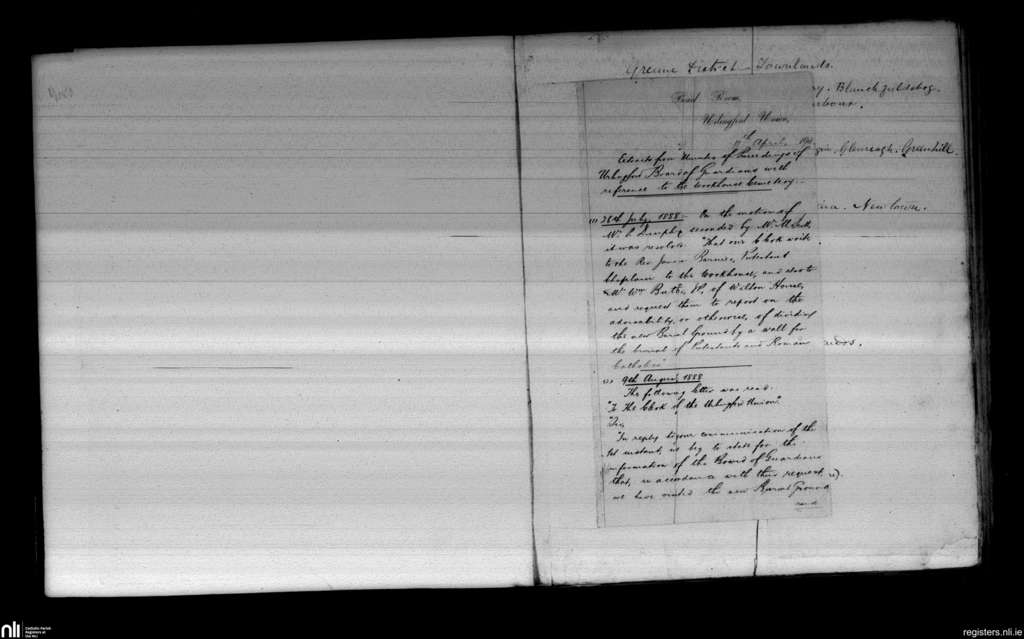 Greine District Townlands.
Blanchfieldsbog.
Board Room
Urlingford Union,
11th April
Extracts from Minutes of Proceedings of
Urlingford Board of Guardians with
reference to the Workhouse Cemetery:—
Glenreagh. Greenhill.
Newtown.
(1) 28th July, 1888. On the motion of
Mr. seconded by Mr.
it was resolved. "That our Clerk write
to the Rev James Protestant
Chaplain to the Workhouse, and also to
Mr. Wm Butler, J.P., of Wilton House,
and request them to report on the
advisability, or otherwise, of dividing
the new Burial Ground by a wall for
the burial of Protestants and Roman
Catholics"
(2) 9th August, 1888
The following letter was read.
"To The Clerk of the Urlingford Union."
"Sir,
"In reply to your communication of the
1st instant, we beg to state for the
information of the Board of Guardians
that, in accordance with their request,
we have visited the new Burial Ground
and
nli
Catholic Parish
Registers at
the NLI
registers.nli.ie